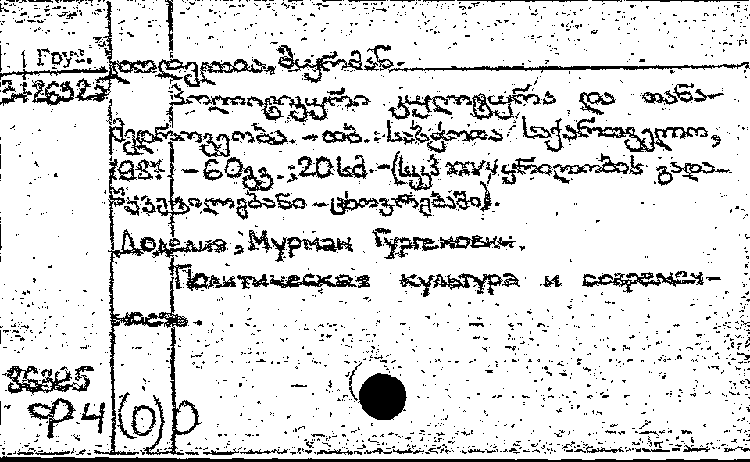 Груз.
დოდელია, მურმან.
26325
პოლიტიკური კულტურა და თანა-
მედროვეობა. - თბ.: საბჭოთა საქართველო,
1987. - 60გვ.; 20სმ. - (სკკპ XXVII ყრილობის გადა-
წყვეტილებანი - ცხოვრებაში).
Доделия, Мурман Гургенович.
Политическая культура и современ-
ность.
86325
Ф4(0)